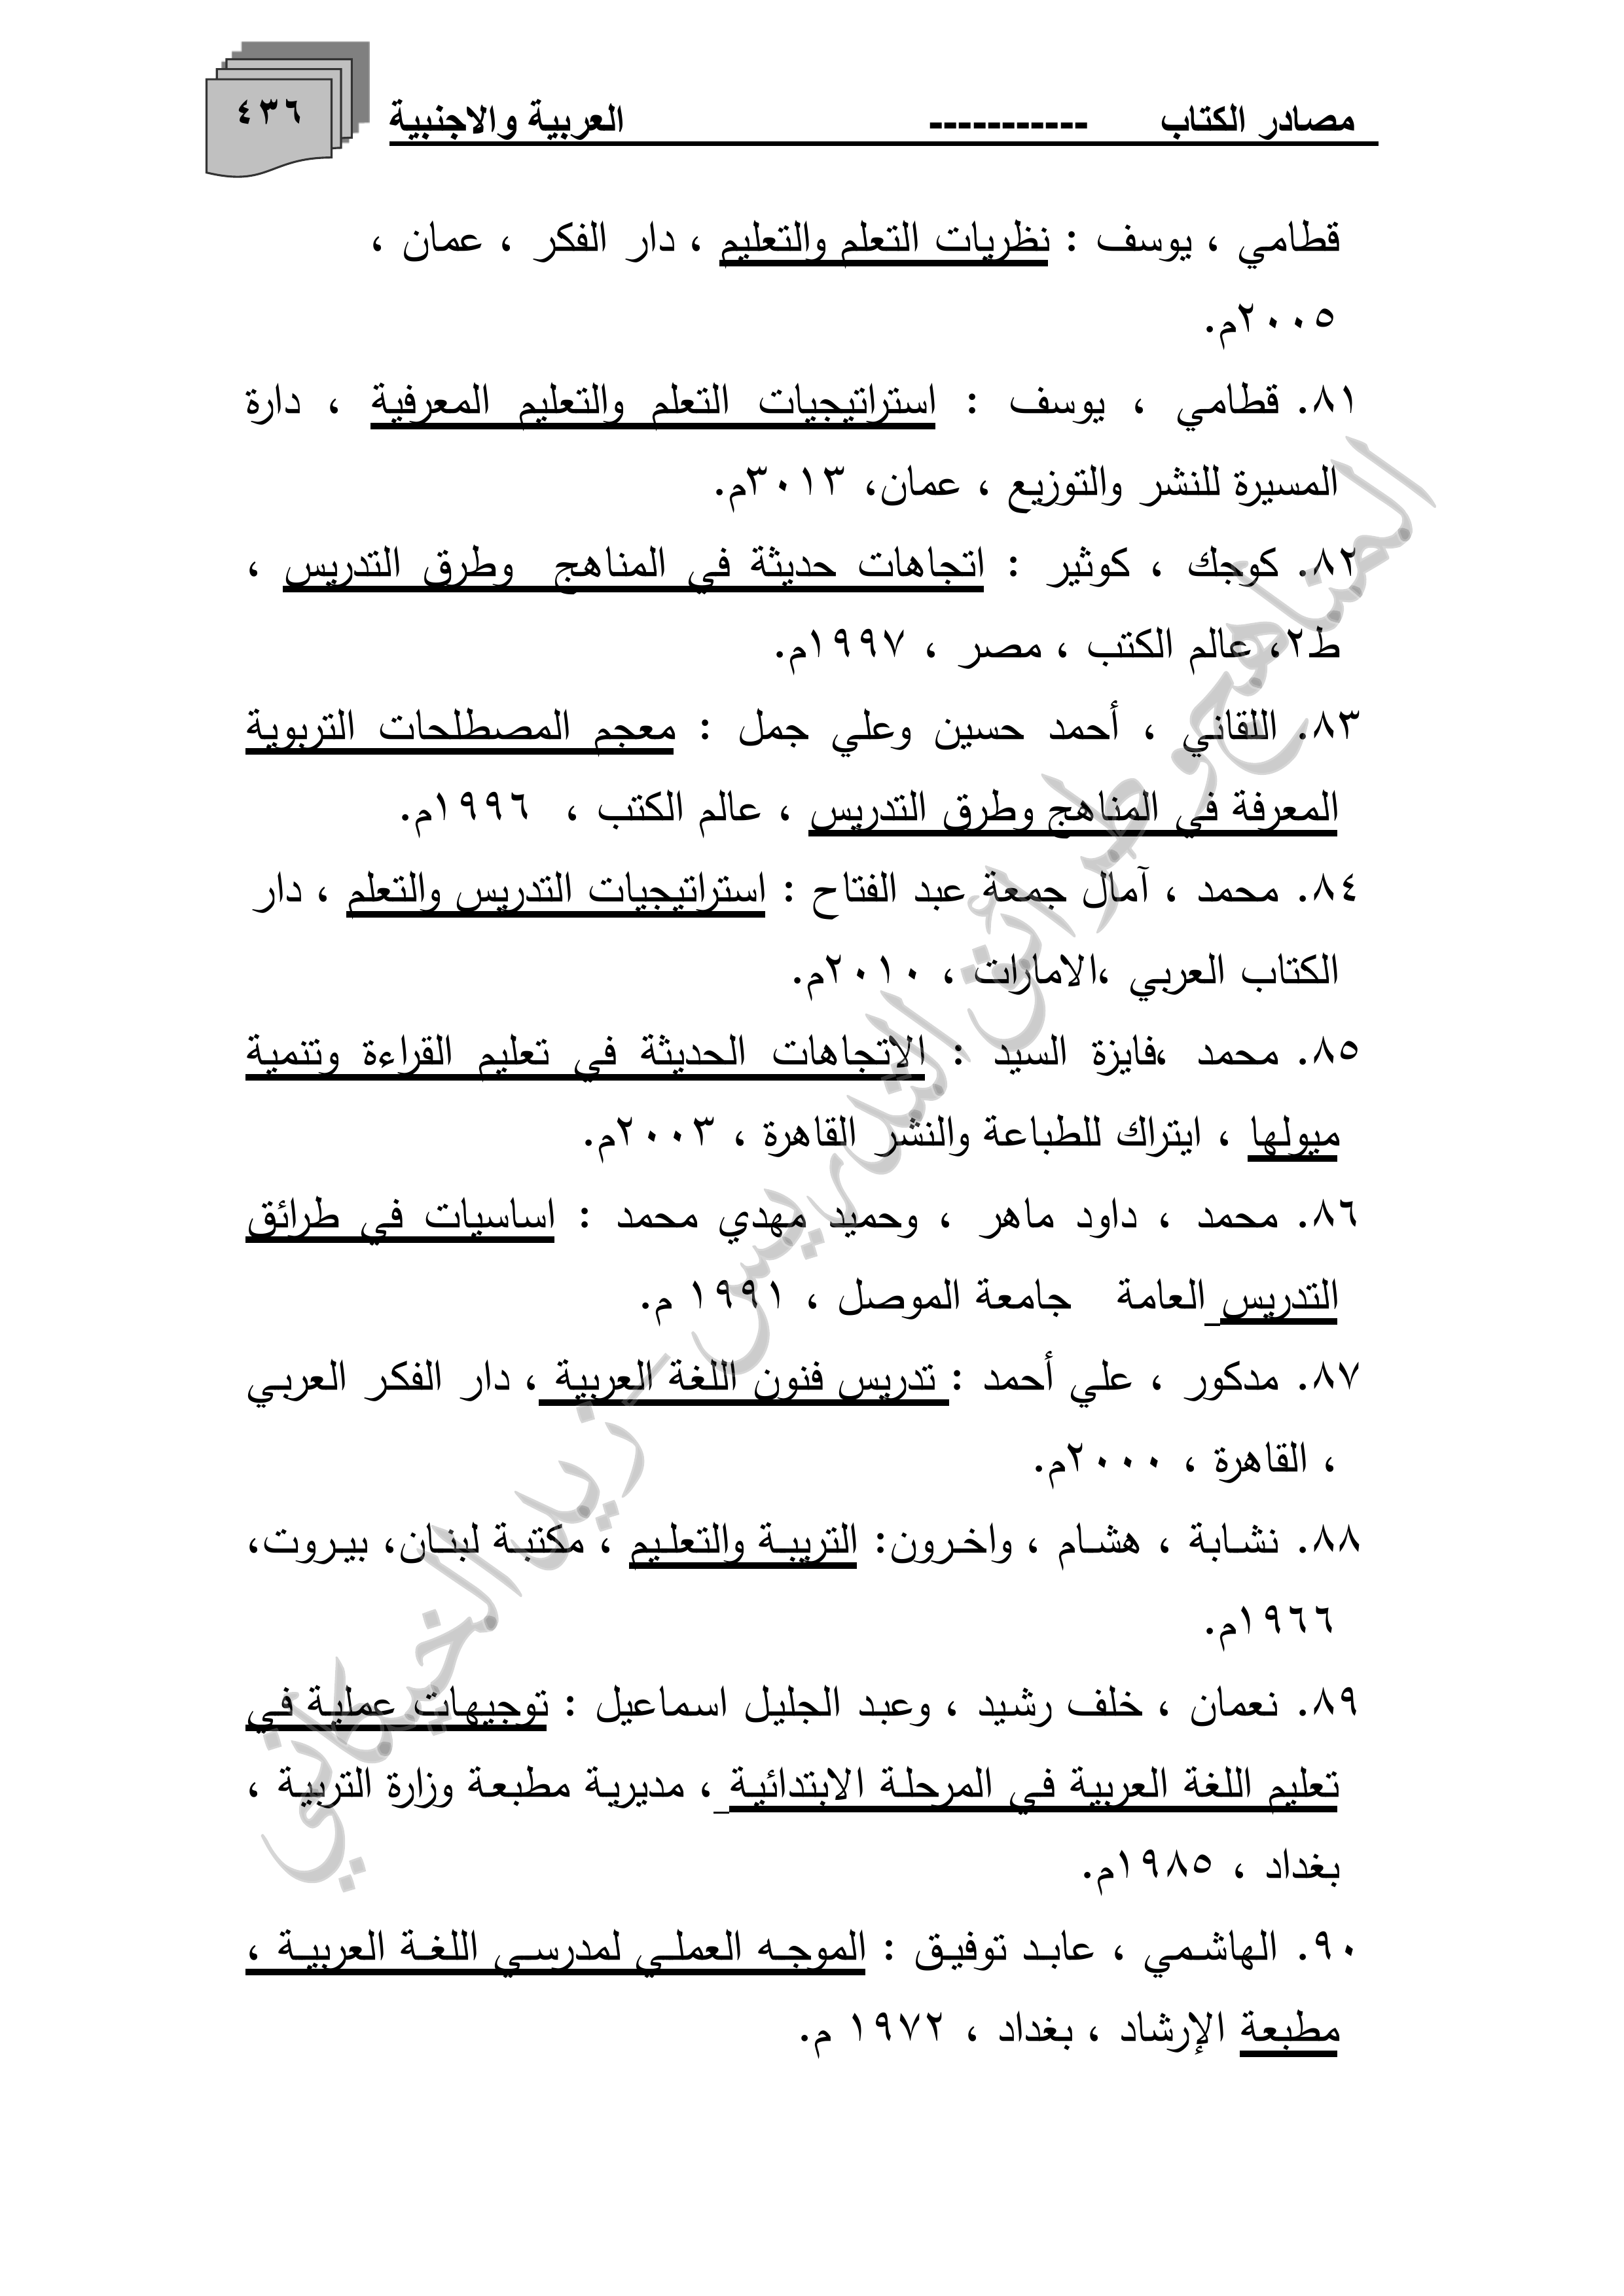 مصادر الكتاب ----------- العربية والاجنبية ٤٣٦
قطامي ، يوسف : نظريات التعلم والتعليم ، دار الفكر ، عمان ،
٢٠٠٥م.
٨١. قطامي ، يوسف : استراتيجيات التعلم والتعليم المعرفية ، دارة
المسيرة للنشر والتوزيع ، عمان، ٣٠١٣م.
٨٢. كوجك ، كوثير : اتجاهات حديثة في المناهج وطرق التدريس ،
ط٢، عالم الكتب ، مصر ، ١٩٩٧م.
٨٣. اللقاني ، أحمد حسين وعلي جمل : معجم المصطلحات التربوية
المعرفة في المناهج وطرق التدريس ، عالم الكتب ، ١٩٩٦م.
٨٤. محمد ، آمال جمعة عبد الفتاح : استراتيجيات التدريس والتعلم ، دار
الكتاب العربي ،الامارات ، ٢٠١٠م.
٨٥. محمد ،فايزة السيد : الاتجاهات الحديثة في تعليم القراءة وتنمية
ميولها ، ايتراك للطباعة والنشر القاهرة ، ٢٠٠٣م.
٨٦. محمد ، داود ماهر ، وحميد مهدي محمد : اساسيات في طرائق
التدريس العامة جامعة الموصل ، ١٩٩١ م.
٨٧. مدكور ، علي أحمد : تدريس فنون اللغة العربية ، دار الفكر العربي
، القاهرة ، ٢٠٠٠م.
٨٨. نشـابة ، هشـام ، واخـرون: التربيـة والتعلـيم ، مكتبـة لبنـان، بيـروت،
١٩٦٦م.
٨٩. نعمان ، خلف رشيد ، وعبد الجليل اسماعيل : توجيهات عملية في
تعليم اللغة العربية في المرحلة الابتدائية ، مديرية مطبعة وزارة التربية ،
بغداد ، ١٩٨٥م.
٩٠. الهاشـمي ، عابـد توفيـق : الموجـه العملـي لمدرسـي اللغـة العربيـة ،
مطبعة الإرشاد ، بغداد ، ١٩٧٢ م.
المناهج وطرائق التدريس - زيد الخيكاني